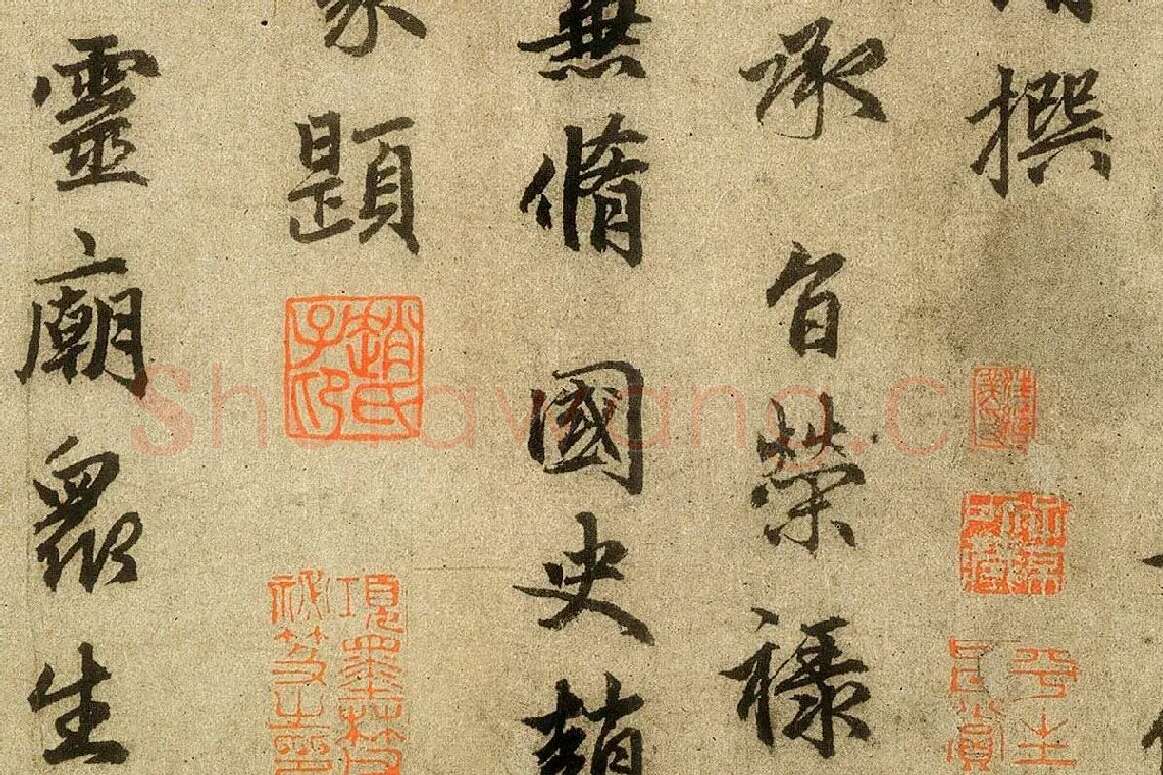 撰
平生真賞
承旨榮祿
兼脩國史趙
篆題
趙氏子昂
項墨林父
秘笈之印
靈廟衆生